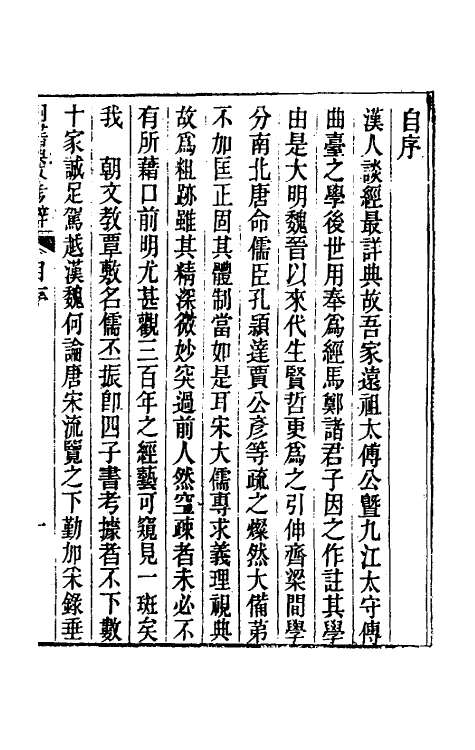 自序
漢人談經最詳典故吾家遠祖太傅公曁九江太守傳
曲臺之學後世用奉爲經馬鄭諸君子因之作註其學
由是大明魏晉以來代生賢哲更爲之引伸齊梁間學
分南北唐命儒臣孔潁達賈公彥等疏之燦然大備第
不加匡正固其體制當如是耳宋大儒專求義理視典
故爲粗跡雖其精深微妙突過前人然空疎者未必不
有所藉口前明尤甚觀三百年之經藝可窺見一斑矣
我　朝文教覃敷名儒丕振卽四子書考據者不下數
十家誠足駕越漢魏何論唐宋流覽之下勤加采錄垂
自序
一